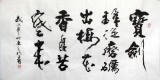 寶劍
鋒從磨礪
出梅花
香自苦
寒來